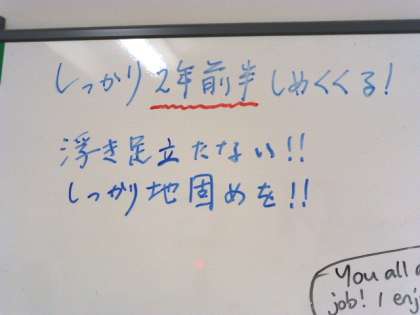 しっかり2年前半しめくくる!
浮き足立たない!!
しっかり地固めを!!
You all
job! I enj